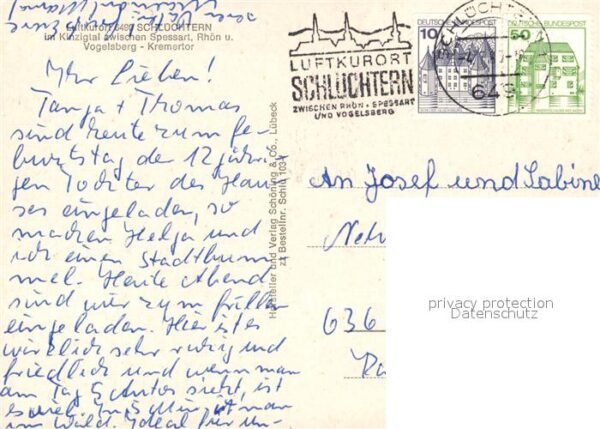 Luftkurort 6490 SCHLÜCHTERN
im Kinzigtal zwischen Spessart, Rhön u.
Vogelsberg - Kremertor
Ihr Lieben!
Tanja + Thomas
sind heute zum Ge-
burtstag der 12 jähri-
gen Tochter des Hau-
ses eingeladen, so
machen Helga und
ich einen Stadtbum-
mel. Heute Abend
sind wir zum Grillen
eingeladen. Hier ist es
wirklich sehr ruhig und
friedlich und wenn man
am Tag 5 Autos sieht, ist
es viel. In 5 Min ist man
im Wald. Ideal für un-
Hersteller und Verlag Schöning & Co., Lübeck
Bestellnr. Schlü 1034
LUFTKURORT
SCHLÜCHTERN
ZWISCHEN RHÖN • SPESSART
UND VOGELSBERG
DEUTSCHE BUNDESPOST
10
DEUTSCHE BUNDESPOST
50
SCHLÜCHTERN
649
An Josef und Sabine
636
privacy protection
Datenschutz